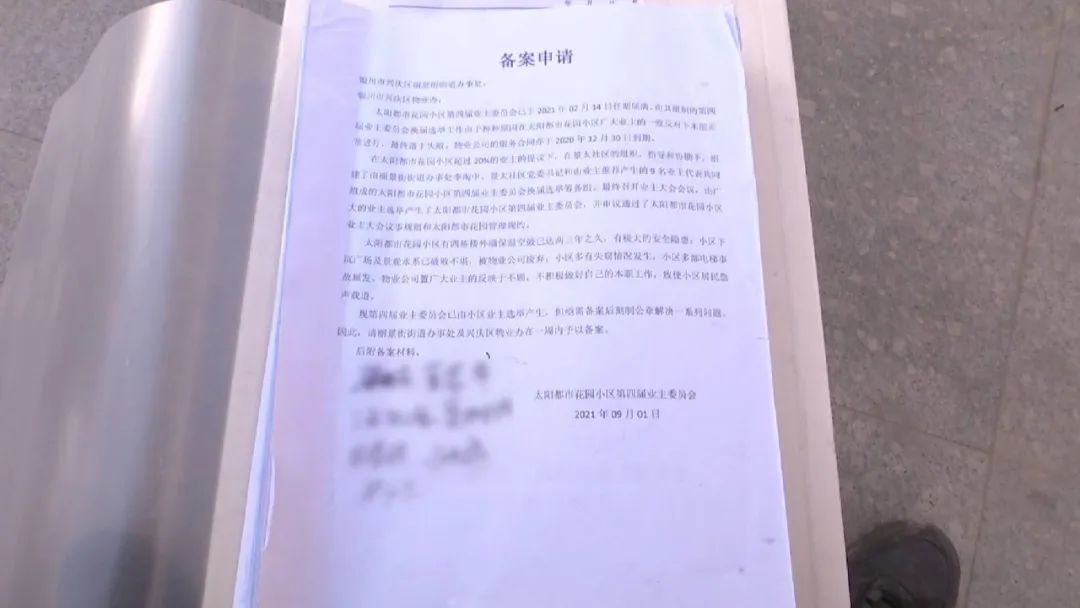 备案申请
银川市兴庆区丽景街街道办事处、
银川市兴庆区物业办:
太阳都市花园小区第四届业主委员会已于 2021 年 02 月 14 日任期届满,而其组织的第四
届业主委员会换届选举工作由于种种原因在太阳都市花园小区广大业主的一致反对下未能正
常进行,最终落于失败。物业公司的服务合同亦于 2020 年 12 月 30 日到期。
在太阳都市花园小区超过 20%的业主的提议下,在景太社区的组织、指导和协助下,组
建了由丽景街街道办事处李海中、景太社区党委书记和由业主推荐产生的 9 名业主代表共同
组成的太阳都市花园小区第四届业主委员会换届选举筹备组。最终召开业主大会会议,由广
大的业主选举产生了太阳都市花园小区第四届业主委员会,并审议通过了太阳都市花园小区
业主大会议事规则和太阳都市花园管理规约。
太阳都市花园小区有四栋楼外墙保温空鼓已达两三年之久,有极大的安全隐患;小区下
沉广场及景观水系已破败不堪,被物业公司废弃;小区多有失窃情况发生,小区多部电梯事
故频发、物业公司置广大业主的反映于不顾,不积极做好自己的本职工作,致使小区居民怨
声载道。
现第四届业主委员会已由小区业主选举产生,但亟需备案后刻制公章解决一系列问题。
因此,请丽景街街道办事处及兴庆区物业办在一周内予以备案。
后附备案材料。
太阳都市花园小区第四届业主委员会
2021 年 09 月 01 日